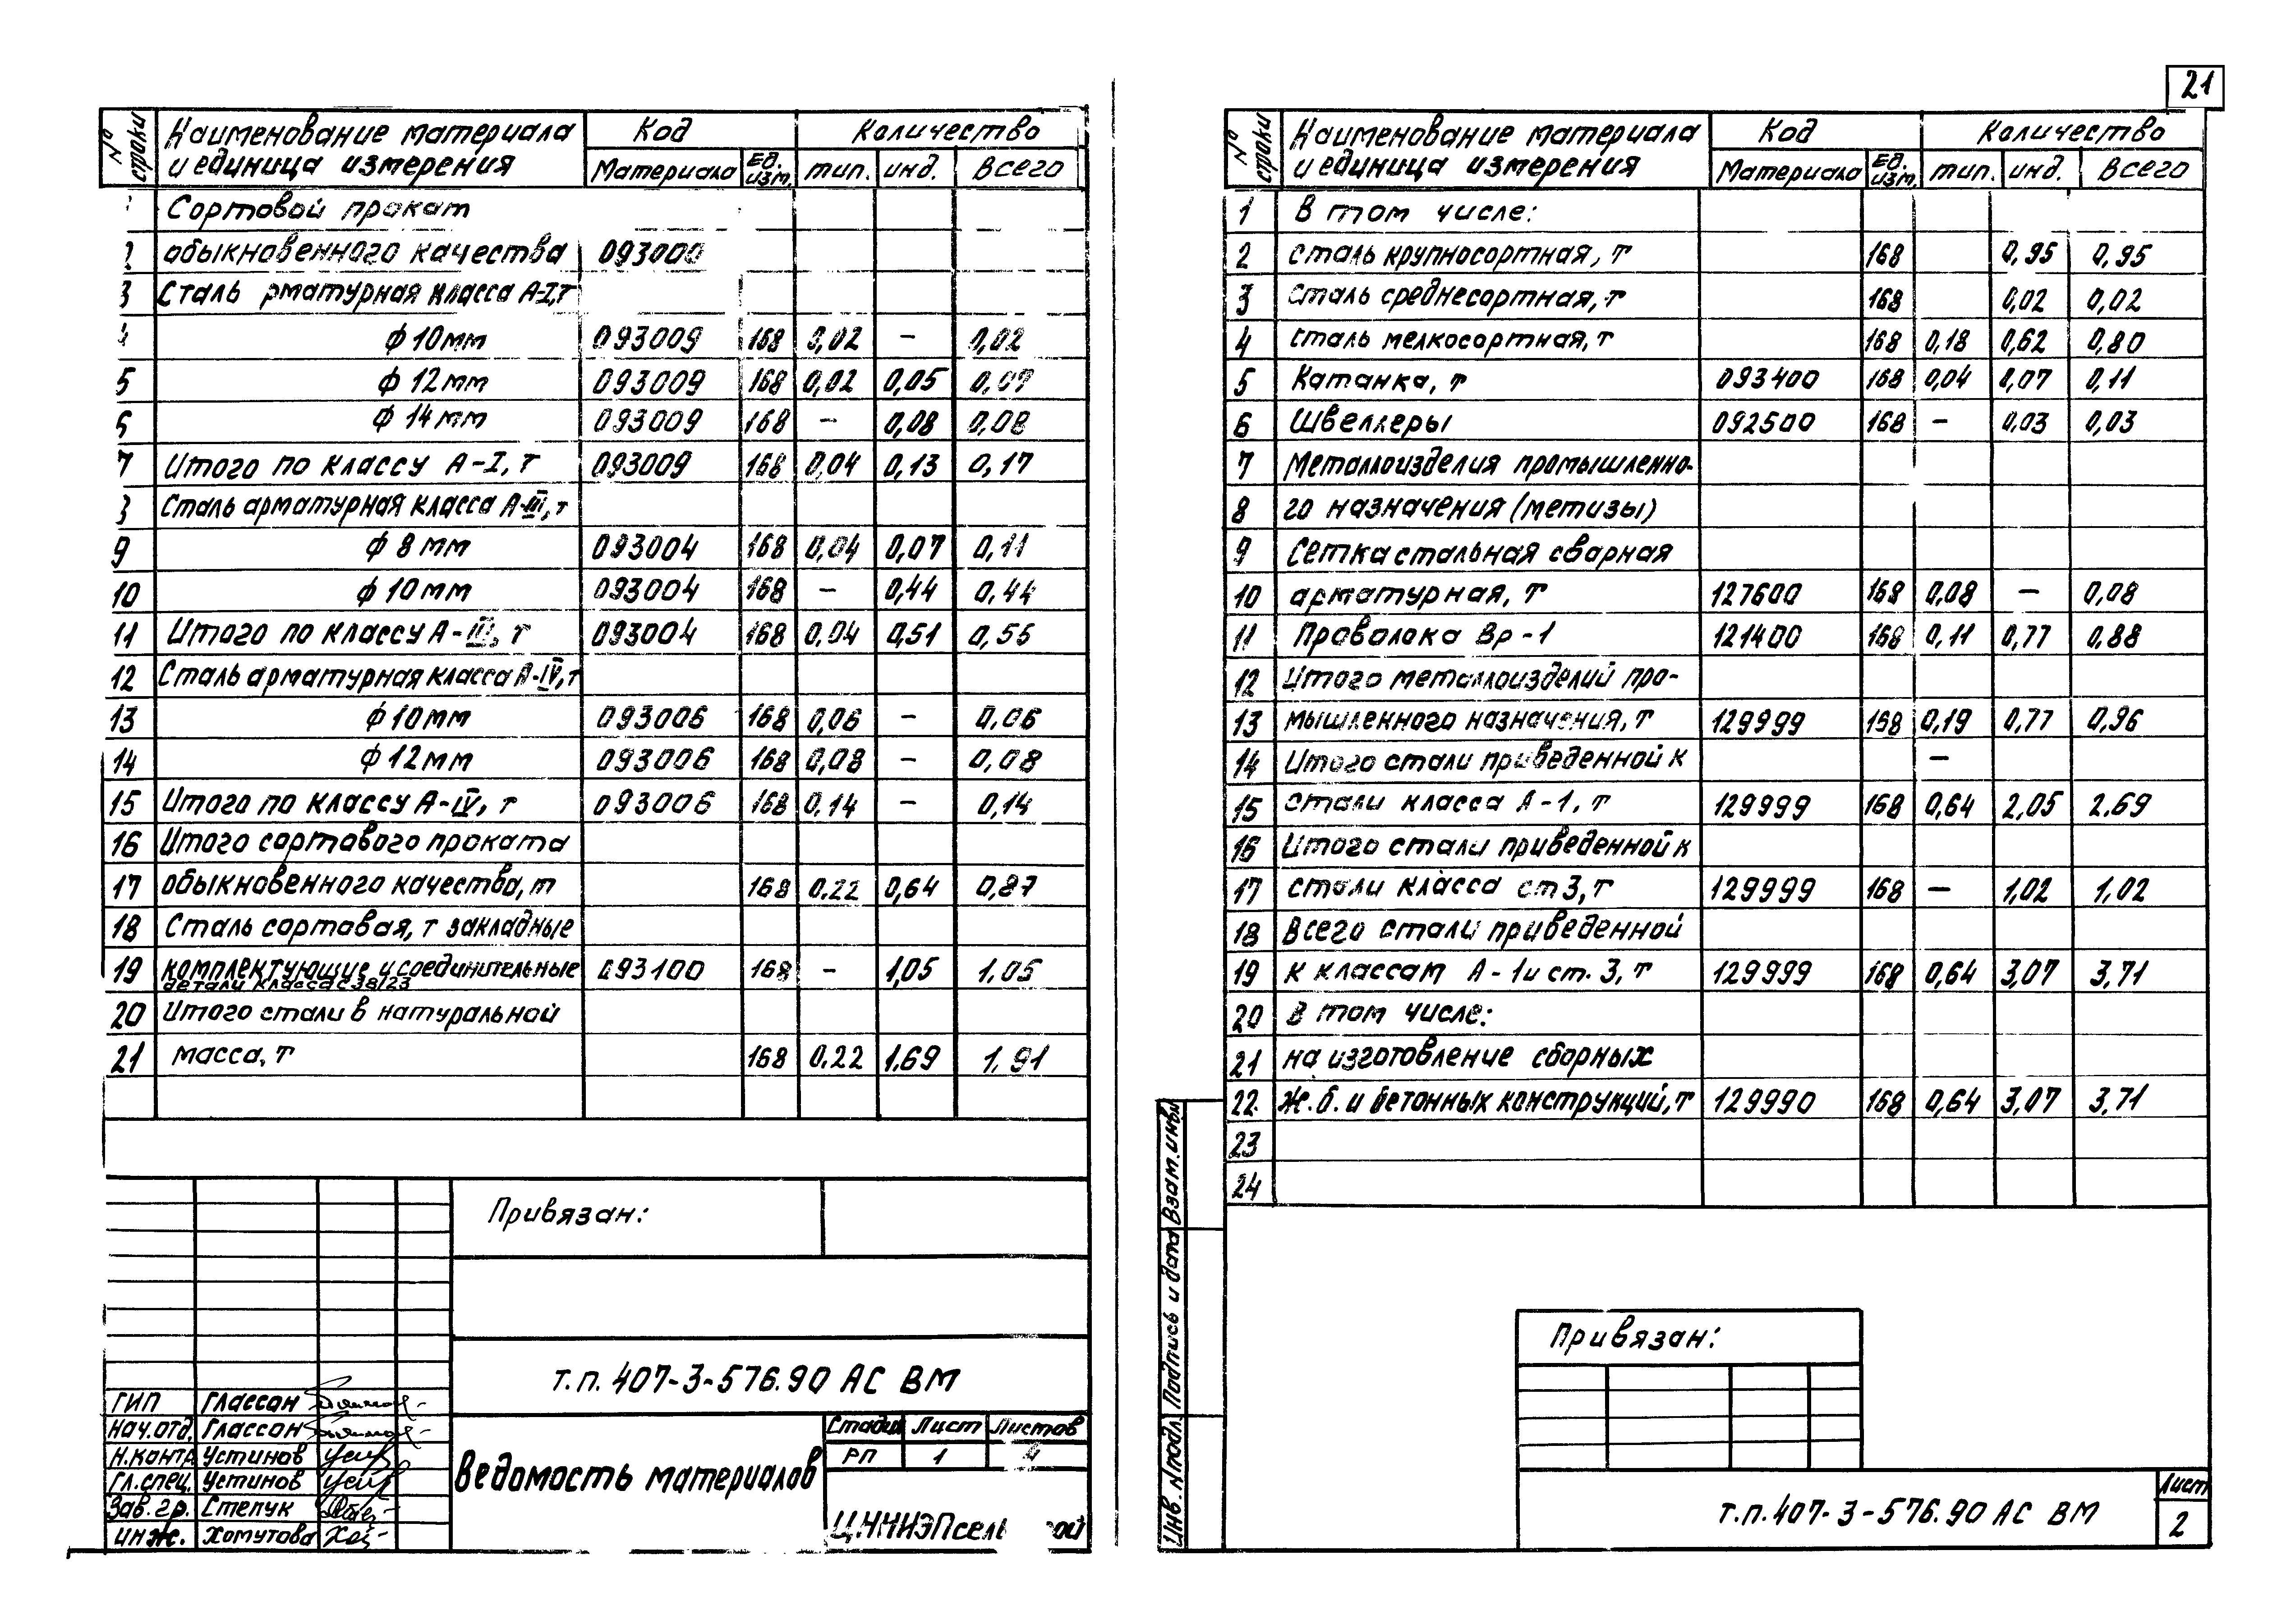 21
№ строки Наименование материала и единица измерения Код Количество
Материала Ед. изм. тип. инд. Всего
Сортовой прокат
2 обыкновенного качества 093000
3 Сталь рматурная класса А-I, т
4 ф 10мм 093009 168 0,02 – 0,02
5 ф 12мм 093009 168 0,02 0,05 0,07
6 ф 14мм 093009 168 – 0,08 0,08
7 Итого по классу А-I, т 093009 168 0,04 0,13 0,17
8 Сталь арматурная класса А-III, т
9 ф 8 мм 093004 168 0,04 0,07 0,11
10 ф 10мм 093004 168 – 0,44 0,44
11 Итого по классу А-III, т 093004 168 0,04 0,51 0,55
12 Сталь арматурная класса А-IV, т
13 ф 10мм 093006 168 0,06 – 0,06
14 ф 12мм 093006 168 0,08 – 0,08
15 Итого по классу А-IV, т 093006 168 0,14 – 0,14
16 Итого сортового проката
17 обыкновенного качества, т 168 0.22 0,64 0,87
18 Сталь сортовая, т закладные
19 комплектующие и соединительные 093100 168 – 1,05 1,05
детали класса С38/23
20 Итого стали в натуральной
21 масса, т 168 0.22 1,69 1,91
Привязан:
т.п. 407-3-576.90 АС ВМ
ГИП Глассон
Нач.отд. Глассон
Н.контр. Устинов
Гл.спец. Устинов
Зав.гр. Степук
инж. Хомутова
Ведомость материалов
Стадия Лист Листов
РП 1 4
№ строки Наименование материала и единица измерения Код Количество
Материала Ед. изм. тип. инд. Всего
1 В том числе:
2 сталь крупносортная, т 168 0,95 0,95
3 сталь среднесортная, т 168 0,02 0,02
4 сталь мелкосортная, т 168 0,18 0,62 0,80
5 Катанка, т 093400 168 0,04 0,07 0,11
6 Швеллеры 092500 168 – 0,03 0,03
7 Металлоизделия промышленно-
8 го назначения (метизы)
9 Сетка стальная сварная
10 арматурная, т 127600 168 0,08 – 0,08
11 Проволока Вр-1 121400 168 0,11 0,77 0,88
12 Итого металлоизделий про-
13 мышленного назначения, т 129999 168 0,19 0,77 0,96
14 Итого стали приведенной к –
15 стали класса А-1, т 129999 168 0,64 2,05 2.69
16 Итого стали приведенной к
17 стали класса ст3, т 129999 168 – 1,02 1,02
18 Всего стали приведенной
19 к классам А-1 и ст. 3, т 129999 168 0,64 3,07 3,71
20 в том числе:
21 на изготовление сборных
22. ж.б. и бетонных конструкций, т 129990 168 0,64 3,07 3,71
23
24
Взам.инв.
Подпись и дата
Инв.№подл.
Привязан:
т.п. 407-3-576.90 АС ВМ
Лист
2